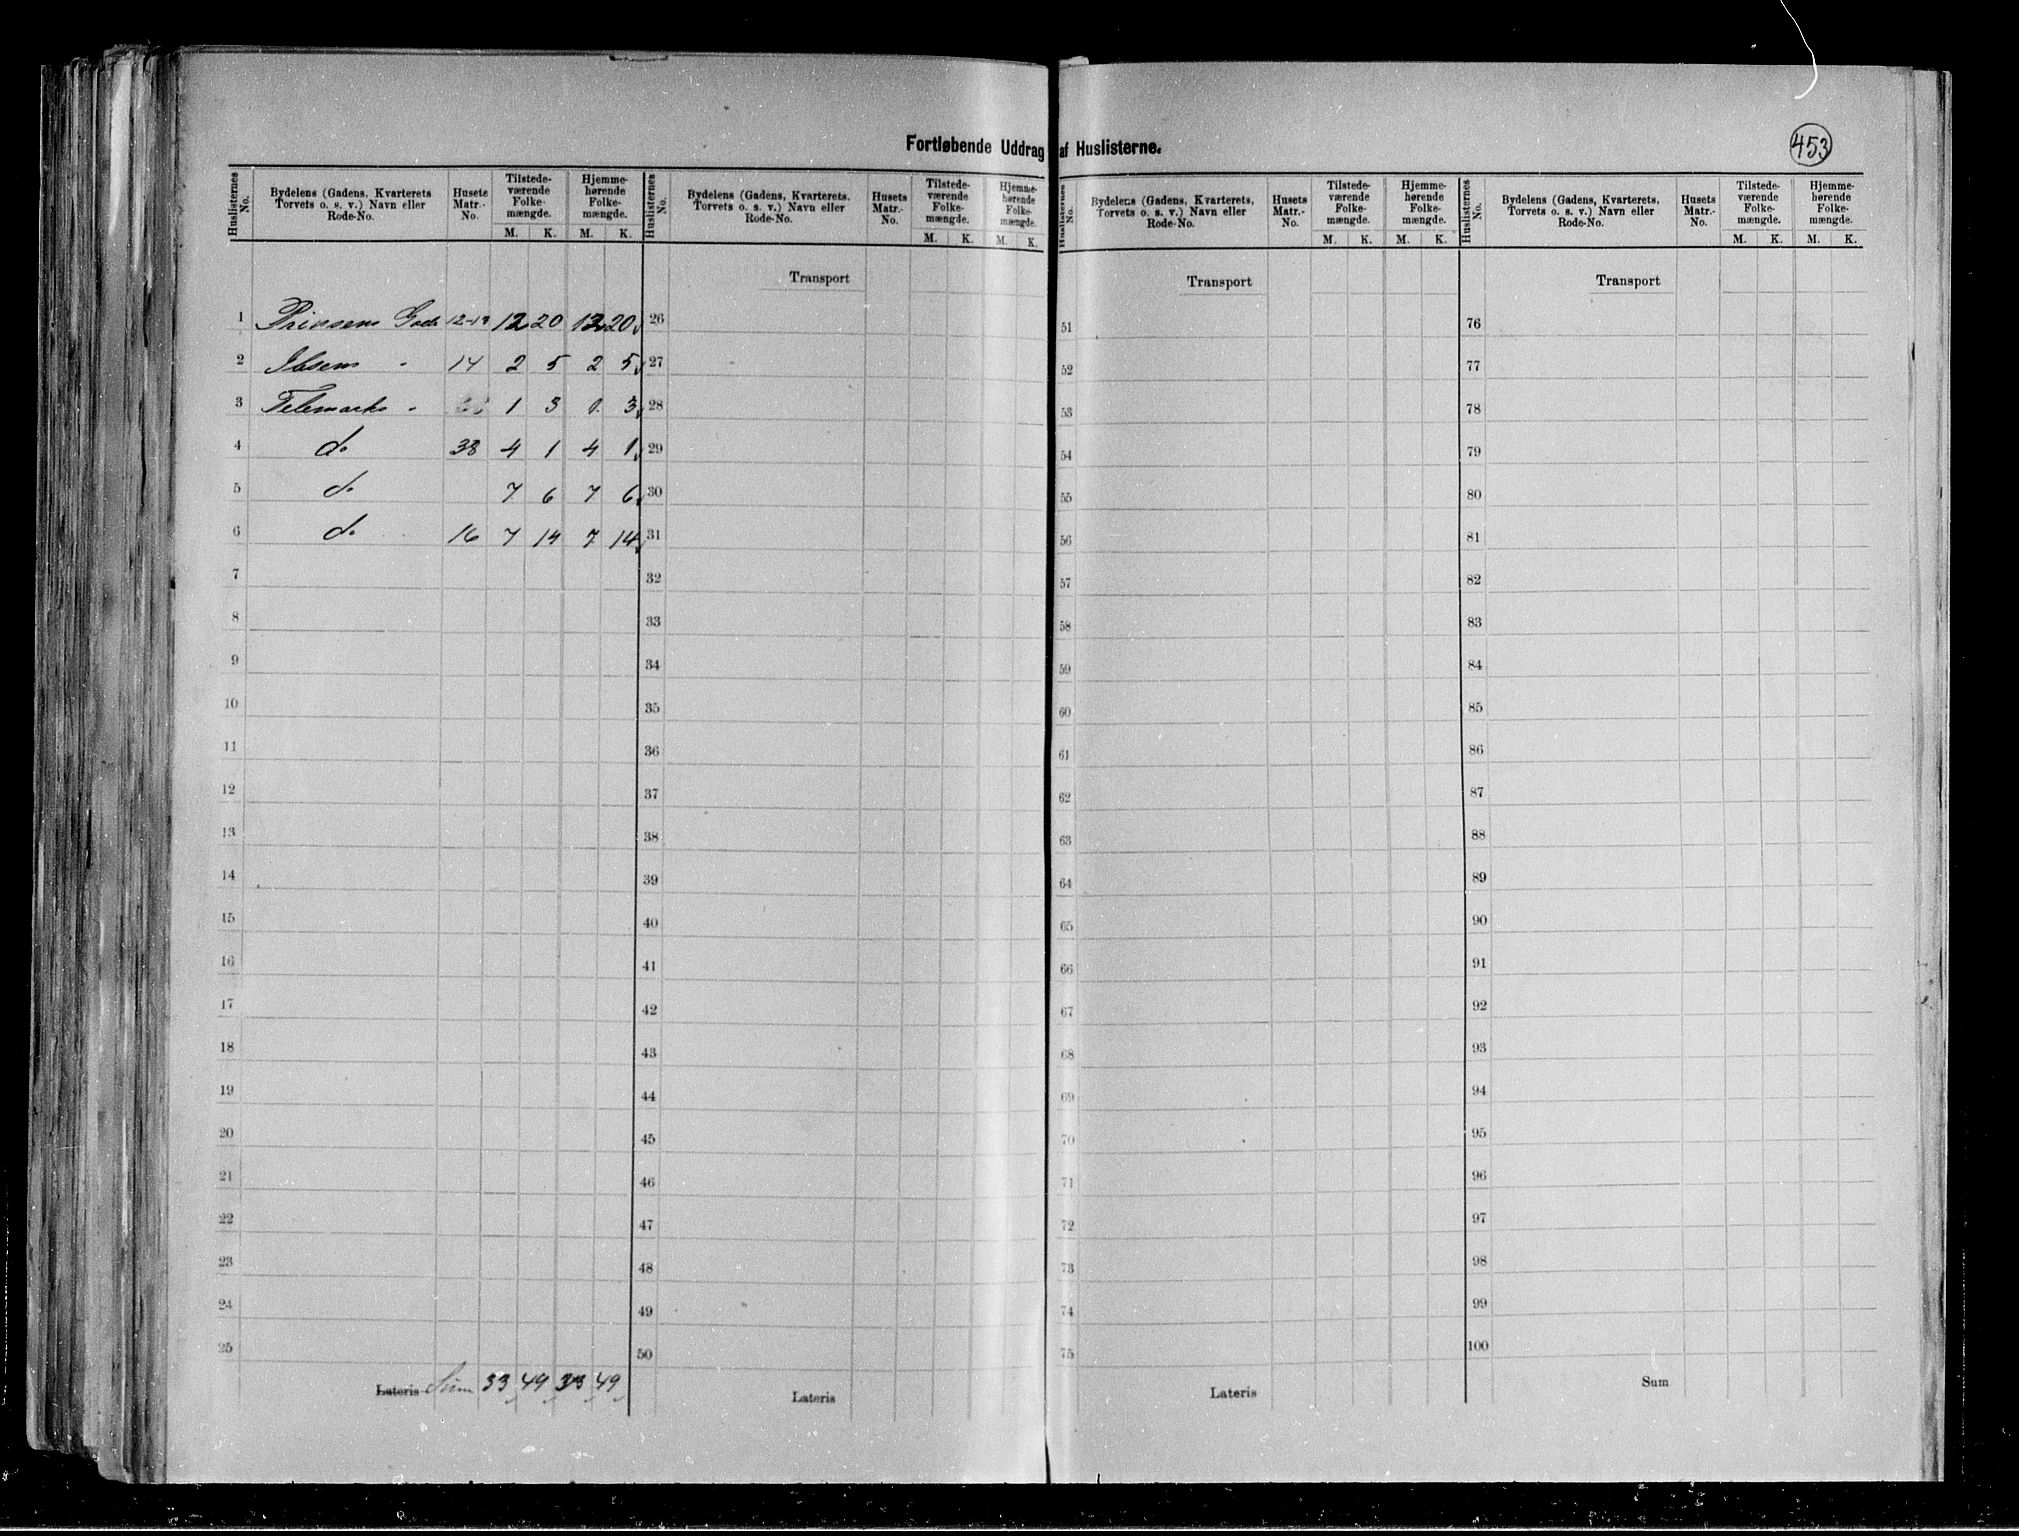 Fortløbende Uddrag af Huslisterne.
453
Huslisternes No. Bydelens (Gadens, Kvarterets Torvets o. s. v.) Navn eller Rode-No. Husets Matr.-No. Tilstede-værende Folke-mængde. Hjemme-hørende Folke-mængde.
M. K. M. K.
1 Prinsens Gade 12-13 12 20 12 20
2 Ibsens " 14 2 5 2 5
3 Telemarks " 1 3 1 3
4 do 38 4 1 4 1
5 do 7 6 7 6
6 do 16 7 14 7 14
7
8
9
10
11
12
13
14
15
16
17
18
19
20
21
22
23
24
25
Lateris Sum 33 49 33 49
Huslisternes No. Bydelens (Gadens, Kvarterets, Torvets o. s. v.) Navn eller Rode-No. Husets Matr.-No. Tilstede-værende Folke-mængde. Hjemme-hørende Folke-mængde.
M. K. M. K.
Transport
26
27
28
29
30
31
32
33
34
35
36
37
38
39
40
41
42
43
44
45
46
47
48
49
50
Lateris
Huslisternes No. Bydelens (Gadens, Kvarterets, Torvets o. s. v.) Navn eller Rode-No. Husets Matr.-No. Tilstede-værende Folke-mængde. Hjemme-hørende Folke-mængde.
M. K. M. K.
Transport
51
52
53
54
55
56
57
58
59
60
61
62
63
64
65
66
67
68
69
70
71
72
73
74
75
Lateris
Huslisternes No. Bydelens (Gadens, Kvarterets, Torvets o. s. v.) Navn eller Rode-No. Husets Matr.-No. Tilstede-værende Folke-mængde. Hjemme-hørende Folke-mængde.
M. K. M. K.
Transport
76
77
78
79
80
81
82
83
84
85
86
87
88
89
90
91
92
93
94
95
96
97
98
99
100
Sum